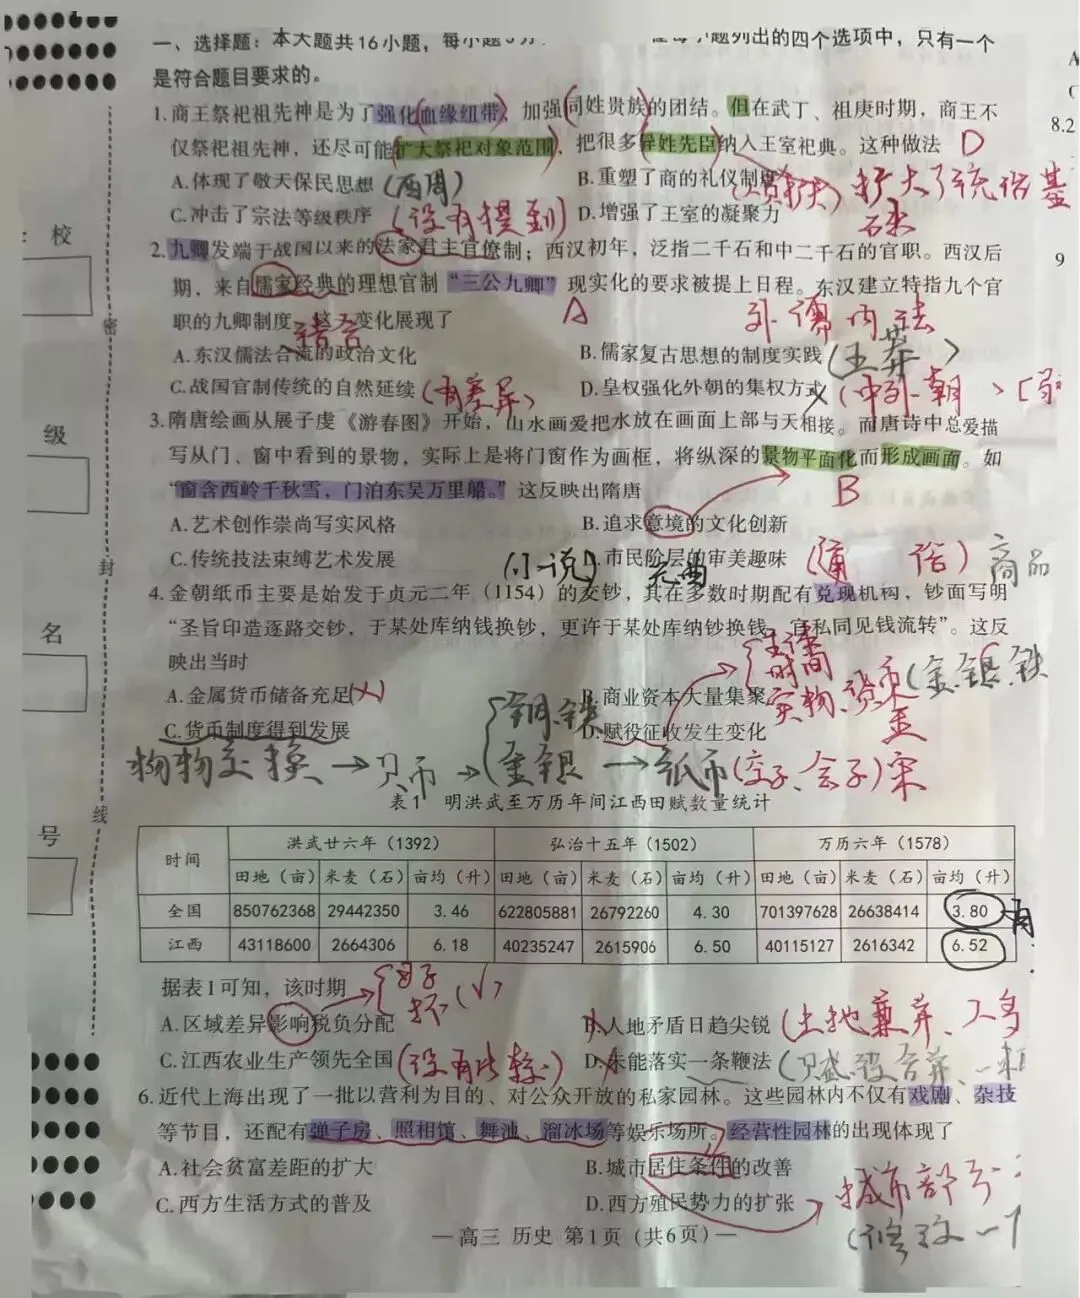 一、选择题：本大题共16小题，每小题3分 题列出的四个选项中，只有一个
是符合题目要求的。
1.商王祭祀祖先神是为了强化血缘纽带，加强同姓贵族的团结。但在武丁、祖庚时期，商王不
仅祭祀祖先神，还尽可能扩大祭祀对象范围，把很多异姓先臣纳入王室祀典。这种做法 D
A.体现了敬天保民思想（西周） B.重塑了商的礼仪制度 扩大了统治基
C.冲击了宗法等级秩序（没有提到） D.增强了王室的凝聚力 础
校
2.九卿发端于战国以来的法家君主官僚制；西汉初年，泛指二千石和中二千石的官职。西汉后
期，来自儒家经典的理想官制“三公九卿”现实化的要求被提上日程。东汉建立特指九个官
职的九卿制度。这一变化展现了 A 外儒内法
结合
密
A.东汉儒法合流的政治文化 B.儒家复古思想的制度实践（王莽）
C.战国官制传统的自然延续（有差异） D.皇权强化外朝的集权方式（中外朝）
3.隋唐绘画从展子虔《游春图》开始，山水画爱把水放在画面上部与天相接。而唐诗中总爱描
级
写从门、窗中看到的景物，实际上是将门窗作为画框，将纵深的景物平面化而形成画面。如
“窗含西岭千秋雪，门泊东吴万里船。”这反映出隋唐 B
A.艺术创作崇尚写实风格 B.追求意境的文化创新
C.传统技法束缚艺术发展 D.市民阶层的审美趣味（通俗）商品
封
（小说）元曲
4.金朝纸币主要是始发于贞元二年（1154）的交钞，其在多数时期配有兑现机构，钞面写明
名
“圣旨印造逐路交钞，于某处库纳钱换钞，更许于某处库纳钞换钱，官私同见钱流转”。这反
映出当时
A.金属货币储备充足（×） B.商业资本大量集聚
主体
时间
实物、货币（金、银、铁
C.货币制度得到发展 D.赋役征收发生变化 金
物物交换→贝币→铜、铁 金银→纸币（交子、会子）宋
线
号
表1 明洪武至万历年间江西田赋数量统计
时间 洪武廿六年（1392） 弘治十五年（1502） 万历六年（1578）
田地（亩） 米麦（石） 亩均（升） 田地（亩） 米麦（石） 亩均（升） 田地（亩） 米麦（石） 亩均（升）
全国 850762368 29442350 3.46 622805881 26792260 4.30 701397628 26638414 3.80
江西 43118600 2664306 6.18 40235247 2615906 6.50 40115127 2616342 6.52
据表1可知，该时期
A.区域差异影响税负分配 B.人地矛盾日趋尖锐（土地兼并、人多
C.江西农业生产领先全国（没有比较） D.未能落实一条鞭法（赋役合并、一
6.近代上海出现了一批以营利为目的、对公众开放的私家园林。这些园林内不仅有戏剧、杂技
等节目，还配有弹子房、照相馆、舞池、溜冰场等娱乐场所。经营性园林的出现体现了
A.社会贫富差距的扩大 B.城市居住条件的改善
C.西方生活方式的普及 D.西方殖民势力的扩张
城市部分
一高三 历史 第1页（共6页）一
8.2
9